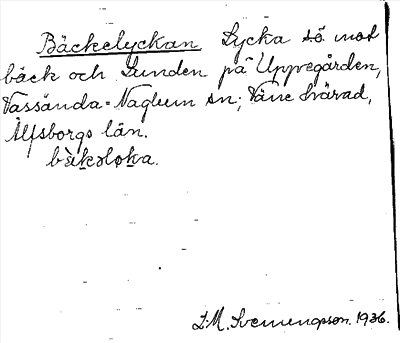 Bäckelyckan Lycka sö mot
bäck och Lunden på Uppegården,
Vassända-Naglum sn; Väne härad,
Älfsborgs län.
bä̀kəlo̩ka.
J.M. Svenungson. 1936.